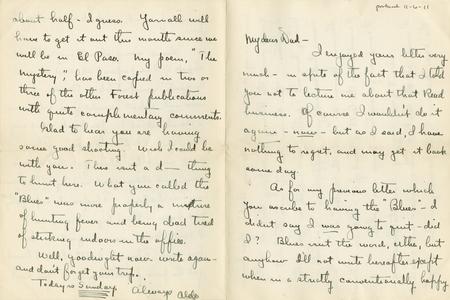 My dear Dad -
I enjoyed your letter very
much - in spite of the fact that I told
you not to lecture me about that Reed
business. Of course I wouldn't do it
again - now - but as I said, I have
nothing to regret, and may get it back
some day.
As for my previous letter which
you ascribe to having the "Blues" - I
didn't say I was going to quit - did
I? Blues isn't the word, either, but
anyhow I'll not write hereafter except
when in a strictly conventionally happy
about half - I guess. Yarnall will
have to get it out this month since we
will be in El Paso. My poem, "The
Mystery," has been copied in two or
three of the other Forest publications
with quite complimentary comments.
Glad to hear you are having
some good shooting. Wish I could be
with you. There isn't a d— thing
to hunt here. What you called the
"Blues" was more properly a mixture
of hunting fever and being dead tired
of sticking indoors in the office.
Well, goodnight now. Write again -
and don't forget your trip.
Today is Sunday Always Aldo